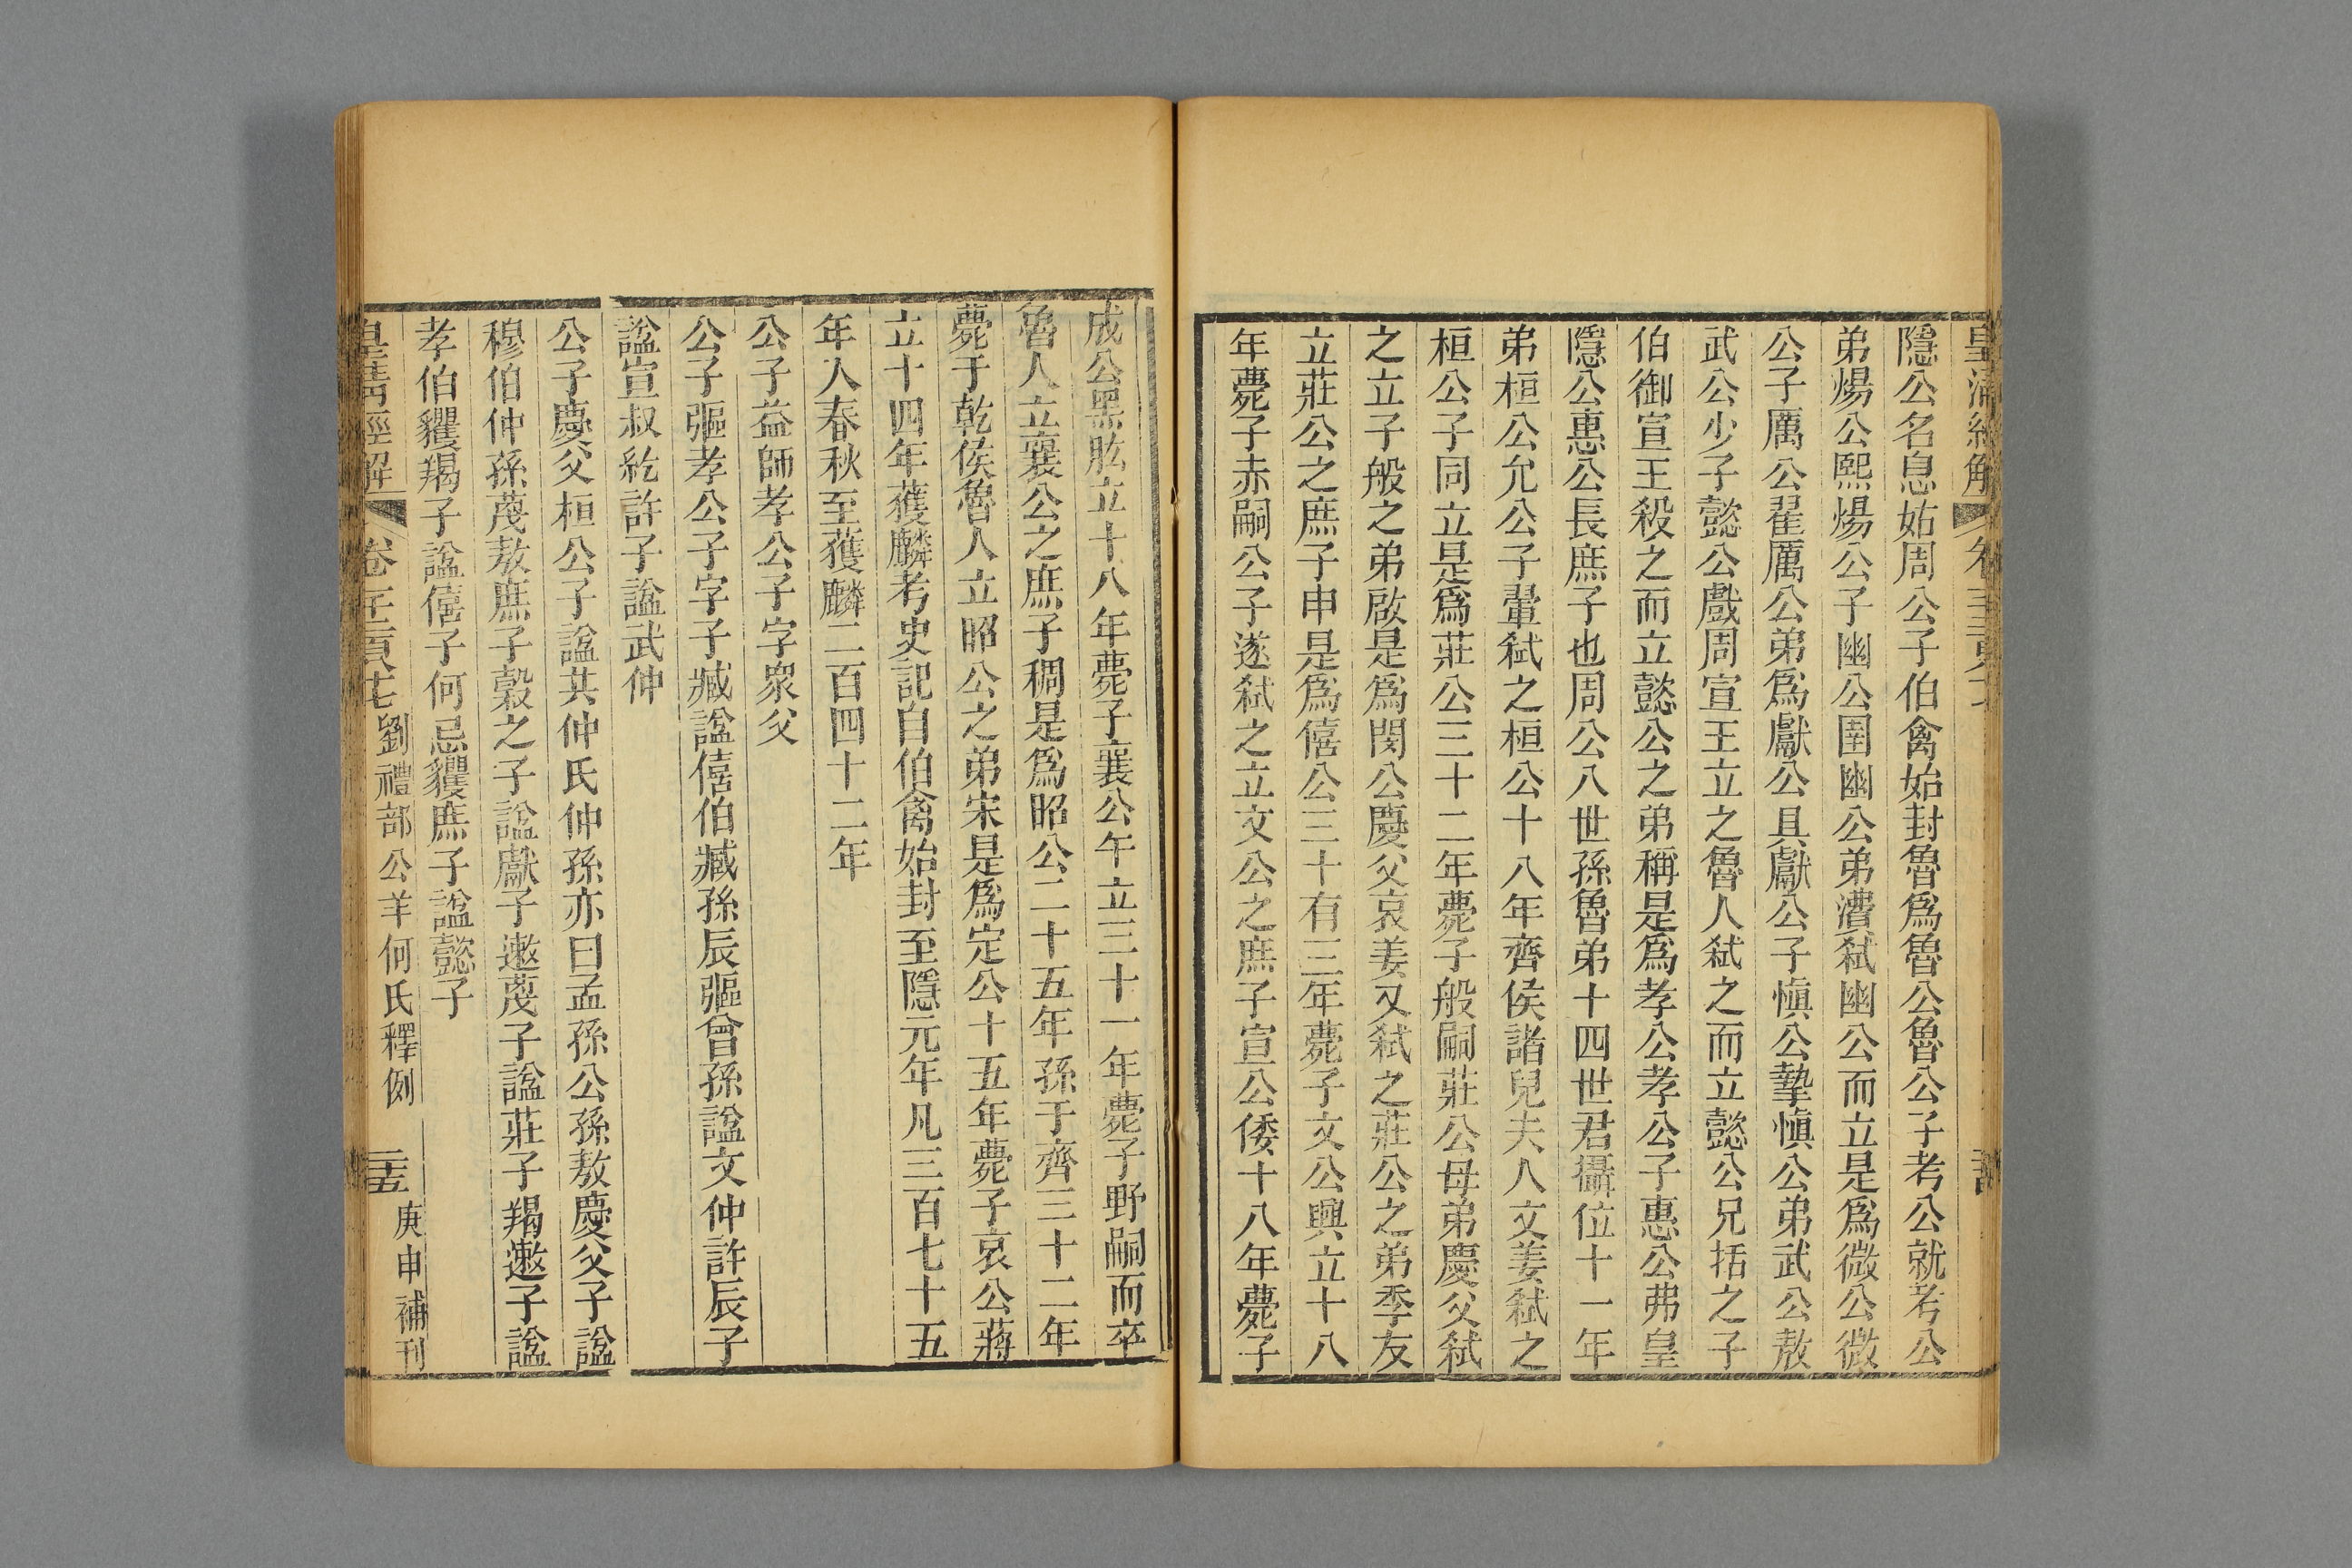 隱公名息姑周公子伯禽始封魯爲魯公魯公子考公就考公
弟煬公熙煬公子幽公圉幽公弟灊弑幽公而立是爲微公微
公子厲公翟厲公弟爲獻公具獻公子愼公摯愼公弟武公敖
武公少子懿公戲周宣王立之魯人弑之而立懿公兄括之子
伯御宣王殺之而立懿公之弟稱是爲孝公孝公子惠公弗皇
隱公惠公長庶子也周公八世孫魯弟十四世君攝位十一年
弟桓公允公子翬弑之桓公十八年齊侯諸兒夫人文姜弑之
桓公子同立是爲莊公三十二年薨子般嗣莊公母弟慶父弑
之立子般之弟啟是爲閔公慶父哀姜又弑之莊公之弟季友
立莊公之庶子申是爲僖公三十有三年薨子文公興立十八
年薨子赤嗣公子遂弑之立文公之庶子宣公倭十八年薨子
成公黑肱立十八年薨子襄公午立三十一年薨子野嗣而卒
魯人立襄公之庶子稠是爲昭公二十五年孫于齊三十二年
薨于乾侯魯人立昭公之弟宋是爲定公十五年薨子哀公蔣
立十四年獲麟考史記自伯禽始封至隱元年凡三百七十五
年入春秋至獲麟二百四十二年
公子益師孝公子字衆父
公子彄孝公子字子臧諡僖伯臧孫辰彄曾孫諡文仲許辰子
諡宣叔紇許子諡武仲
公子慶父桓公子諡共仲氏仲孫亦曰孟孫公孫敖慶父子諡
穆伯仲孫蔑敖庶子穀之子諡獻子遬蔑子諡莊子羯遬子諡
孝伯貜羯子諡僖子何忌貜庶子諡懿子
皇清經解 卷一千二百八十七 劉禮部公羊何氏釋例 二十五 庚申補刊